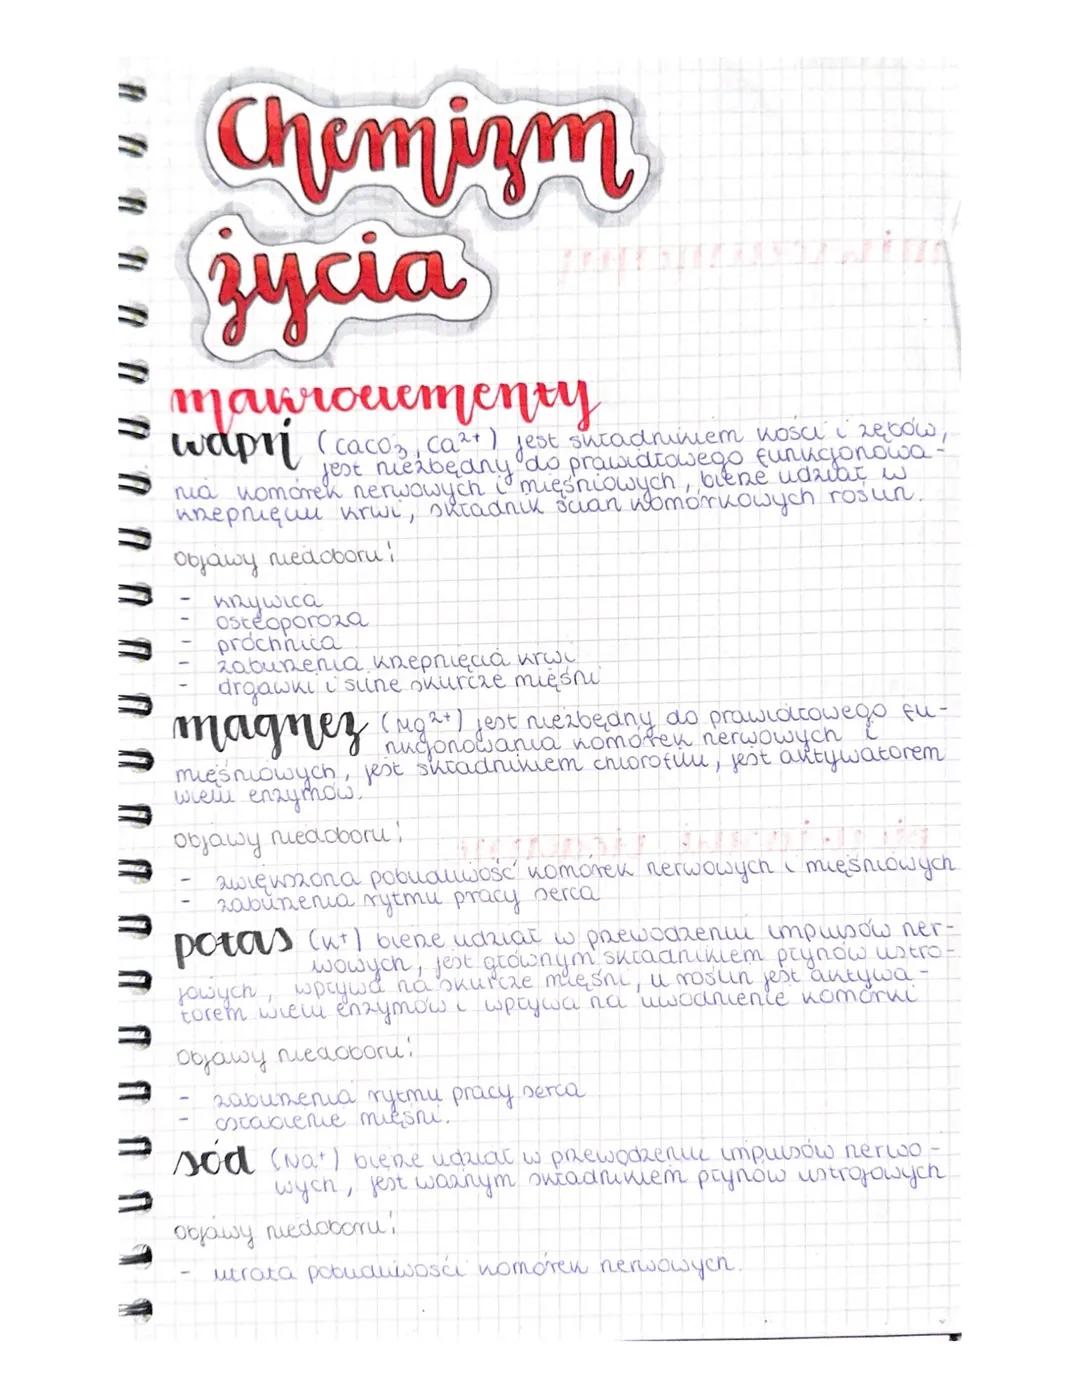 Chemizm
życia
makroelementy
wapń (CaCO₃, Ca²⁺) jest składnikiem kości i zębów,
jest niezbędny do prawidłowego funkcjonowa-
nia komórek nerwowych i mięśniowych, bierze udział w
krzepnięciu krwi, składnik ścian komórkowych roślin.
objawy niedoboru:
- krzywica
- osteoporoza
- próchnica
- zaburzenia krzepnięcia krwi
- drgawki i silne skurcze mięśni
magnez (Mg²⁺) jest niezbędny do prawidłowego fu-
nkcjonowania komórek nerwowych i
mięśniowych, jest składnikiem chlorofilu, jest aktywatorem
wielu enzymów.
objawy niedoboru:
- zwiększona pobudliwość komórek nerwowych i mięśniowych
- zaburzenia rytmu pracy serca
potas (K⁺) bierze udział w przewodzeniu impulsów ner-
wowych, jest głównym składnikiem płynów ustro-
jowych, wpływa na skurcze mięśni, u roślin jest aktywa-
torem wielu enzymów i wpływa na uwodnienie komórki
objawy niedoboru:
- zaburzenia rytmu pracy serca
- osłabienie mięśni.
sód (Na⁺) bierze udział w przewodzeniu impulsów nerwo-
wych, jest ważnym składnikiem płynów ustrojowych
objawy niedoboru:
- utrata pobudliwości komórek nerwowych.